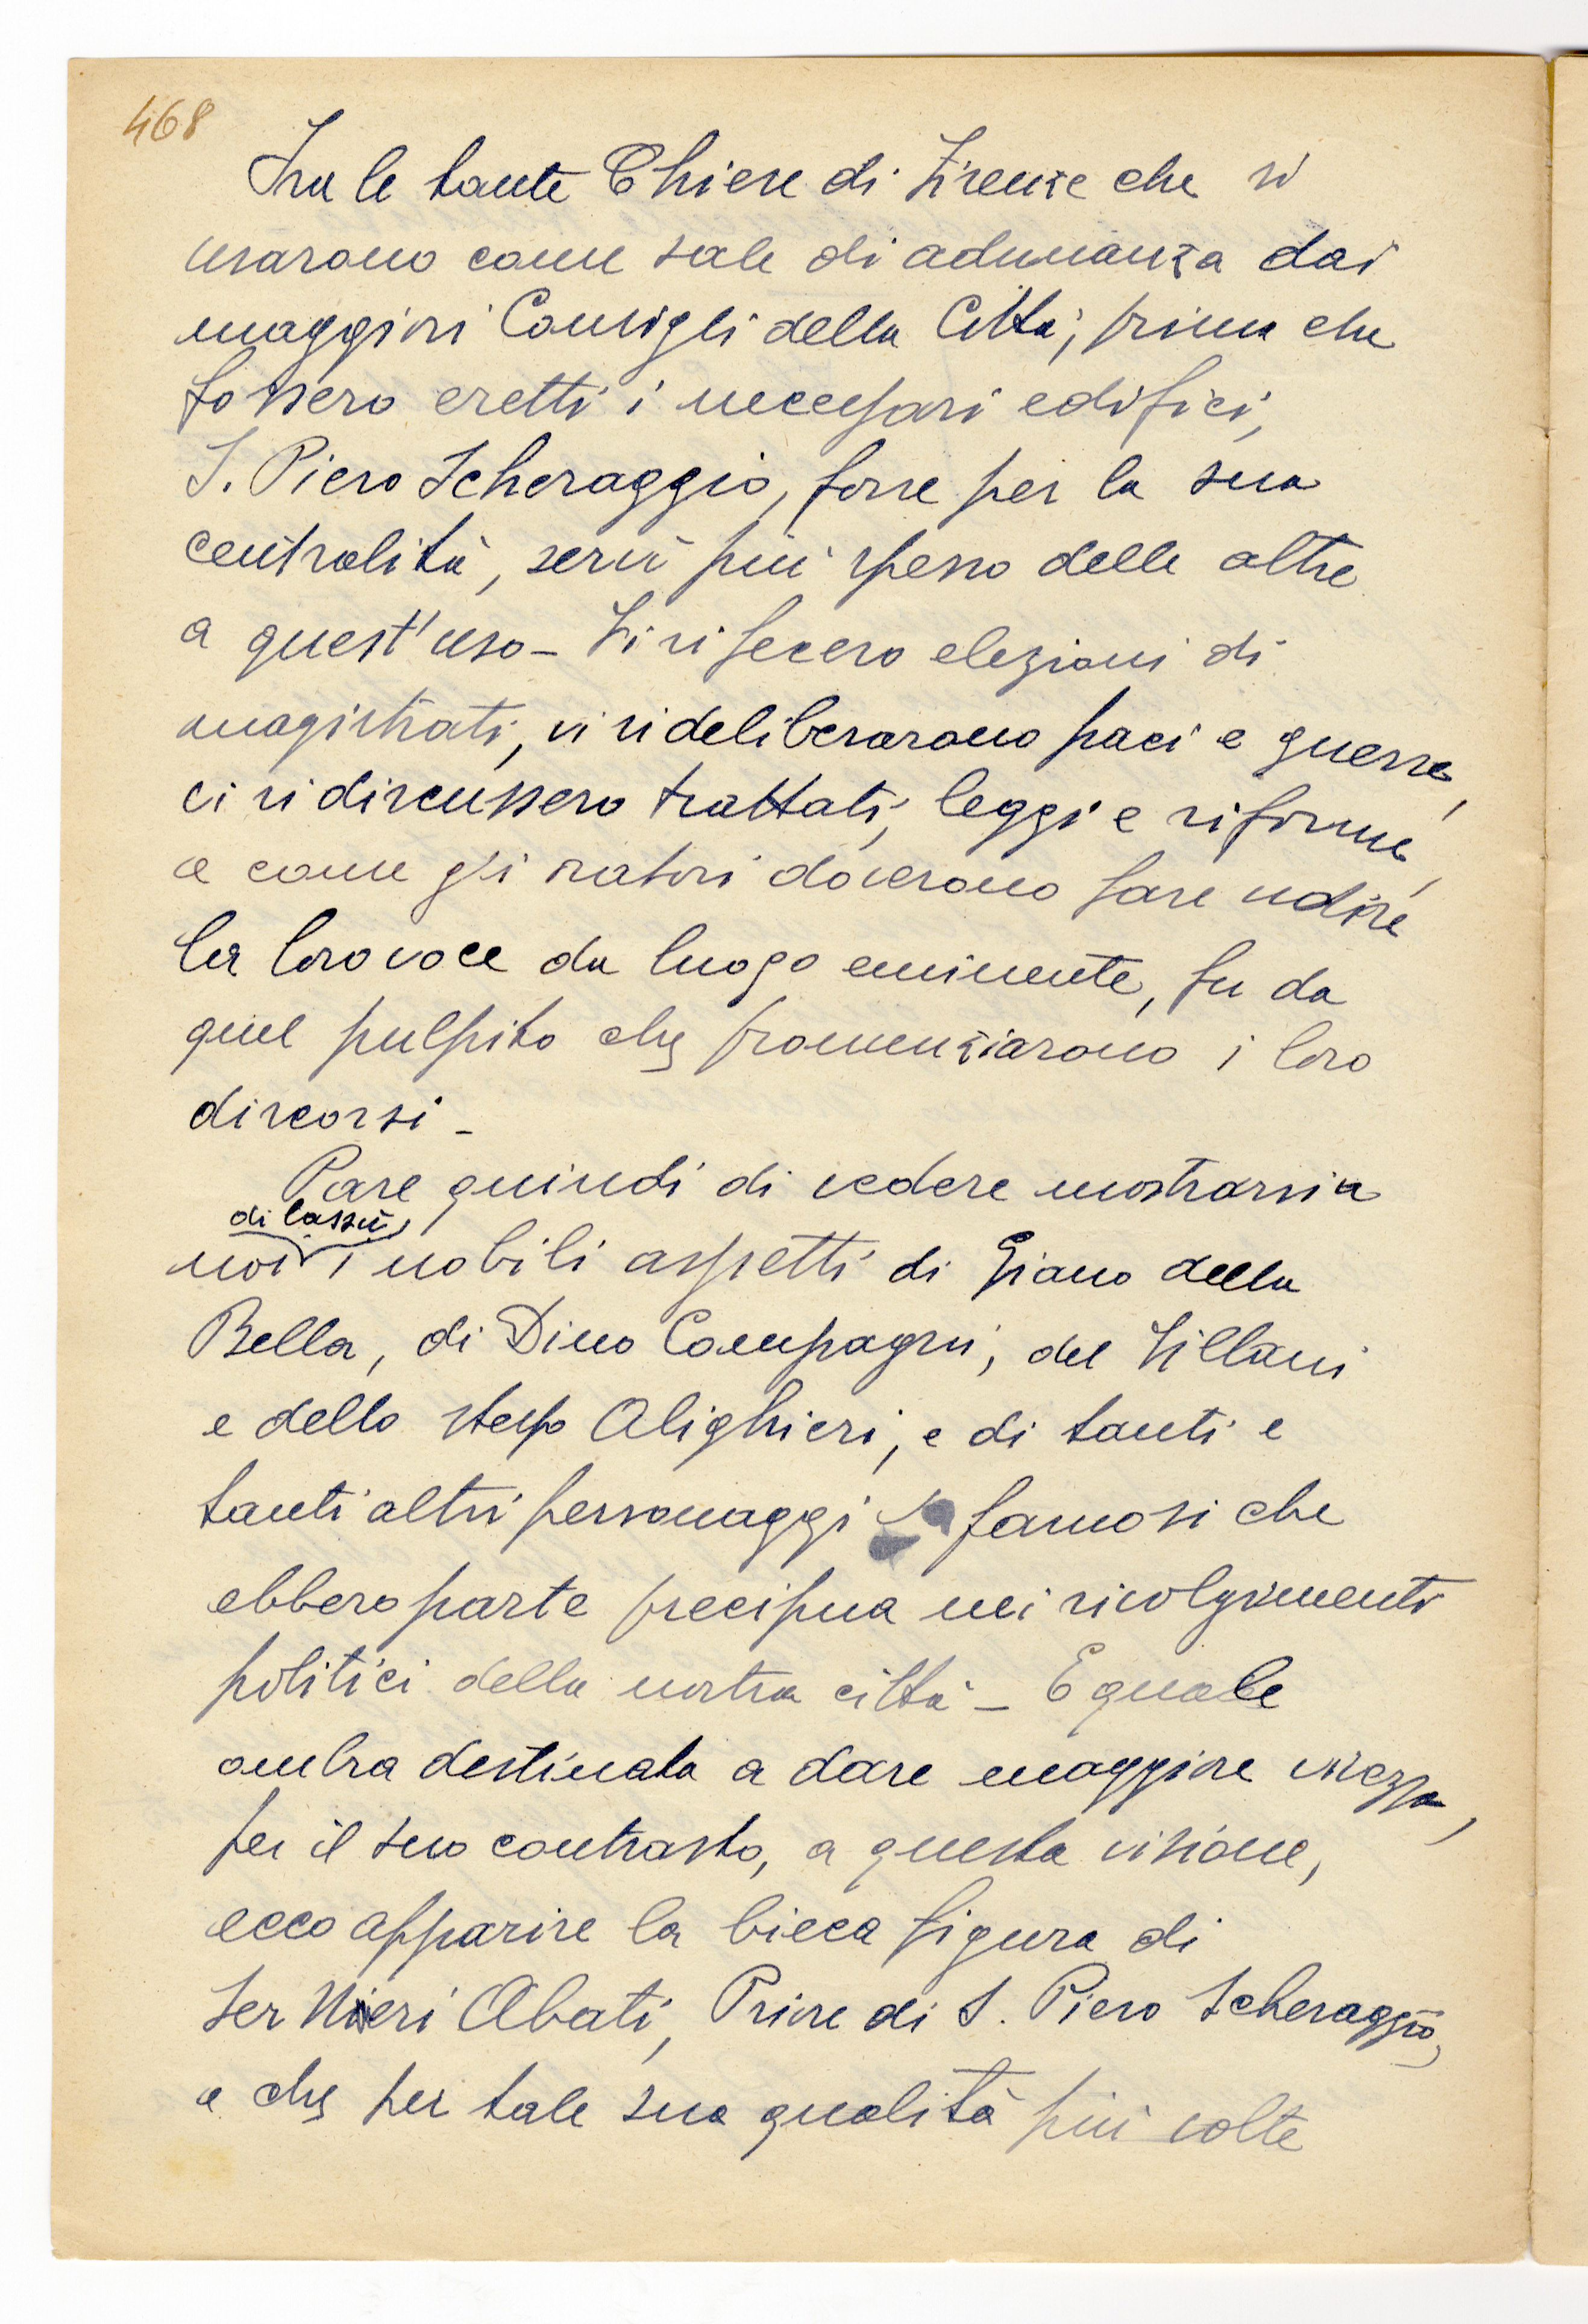 468
Fra le tante Chiese di Firenze che si
usarono come sale di adunanza dai
maggiori Consigli della Città, prima che
fossero eretti i necessari edifici,
S. Piero Scheraggio, forse per la sua
centralità, servì più spesso delle altre
a quest'uso - Vi si fecero elezioni di
magistrati, vi si deliberarono paci e guerre,
ci si discussero trattati, leggi e riforme,
e come gli oratori doverono fare udire
la loro voce da luogo eminente, fu da
quel pulpito che pronunziarono i loro
discorsi -
Pare quindi di vedere mostrarsi a
di lassù,
noi i nobili aspetti di Giano della
Bella, di Dino Compagni, del Villani
e dello stesso Alighieri, e di tanti e
tanti altri personaggi famosi che
ebbero parte precipua nei rivolgimenti
politici della nostra città - E quale
ombra destinata a dare maggiore vivezza,
per il suo contrasto, a questa visione,
ecco apparire la bieca figura di
Ser Neri Abati, Priore di S. Piero Scheraggio,
e che per tale sua qualità più volte